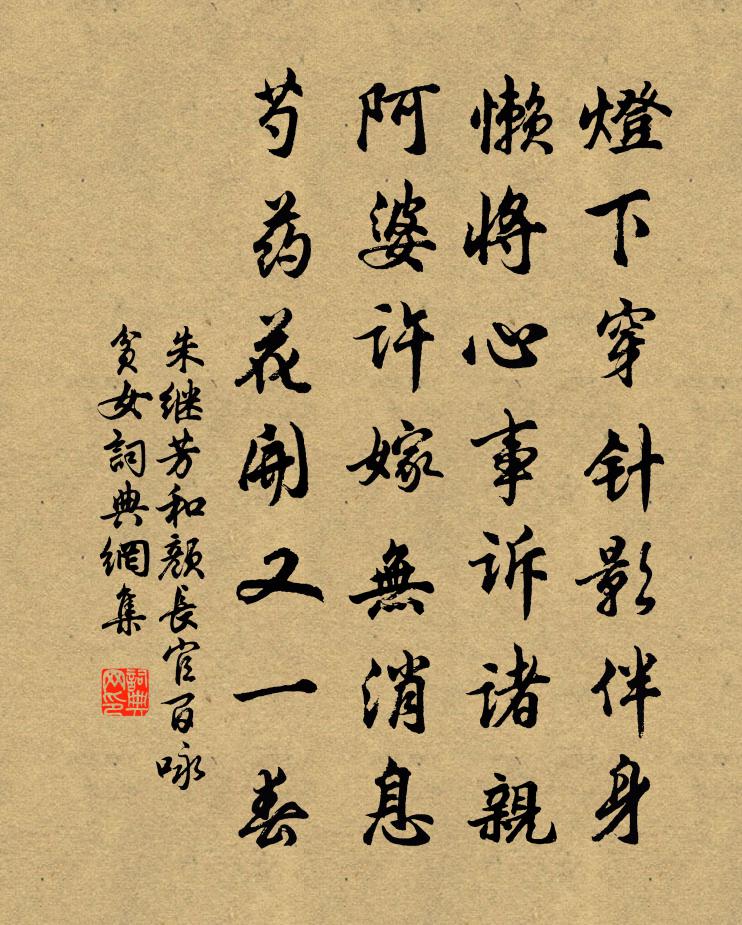 燈下穿针影伴身
懒將心事诉诸親
阿婆许嫁無消息
芍药花開又一春
朱继芳和颜長官百咏
贫女詞典網集
詞典
网印